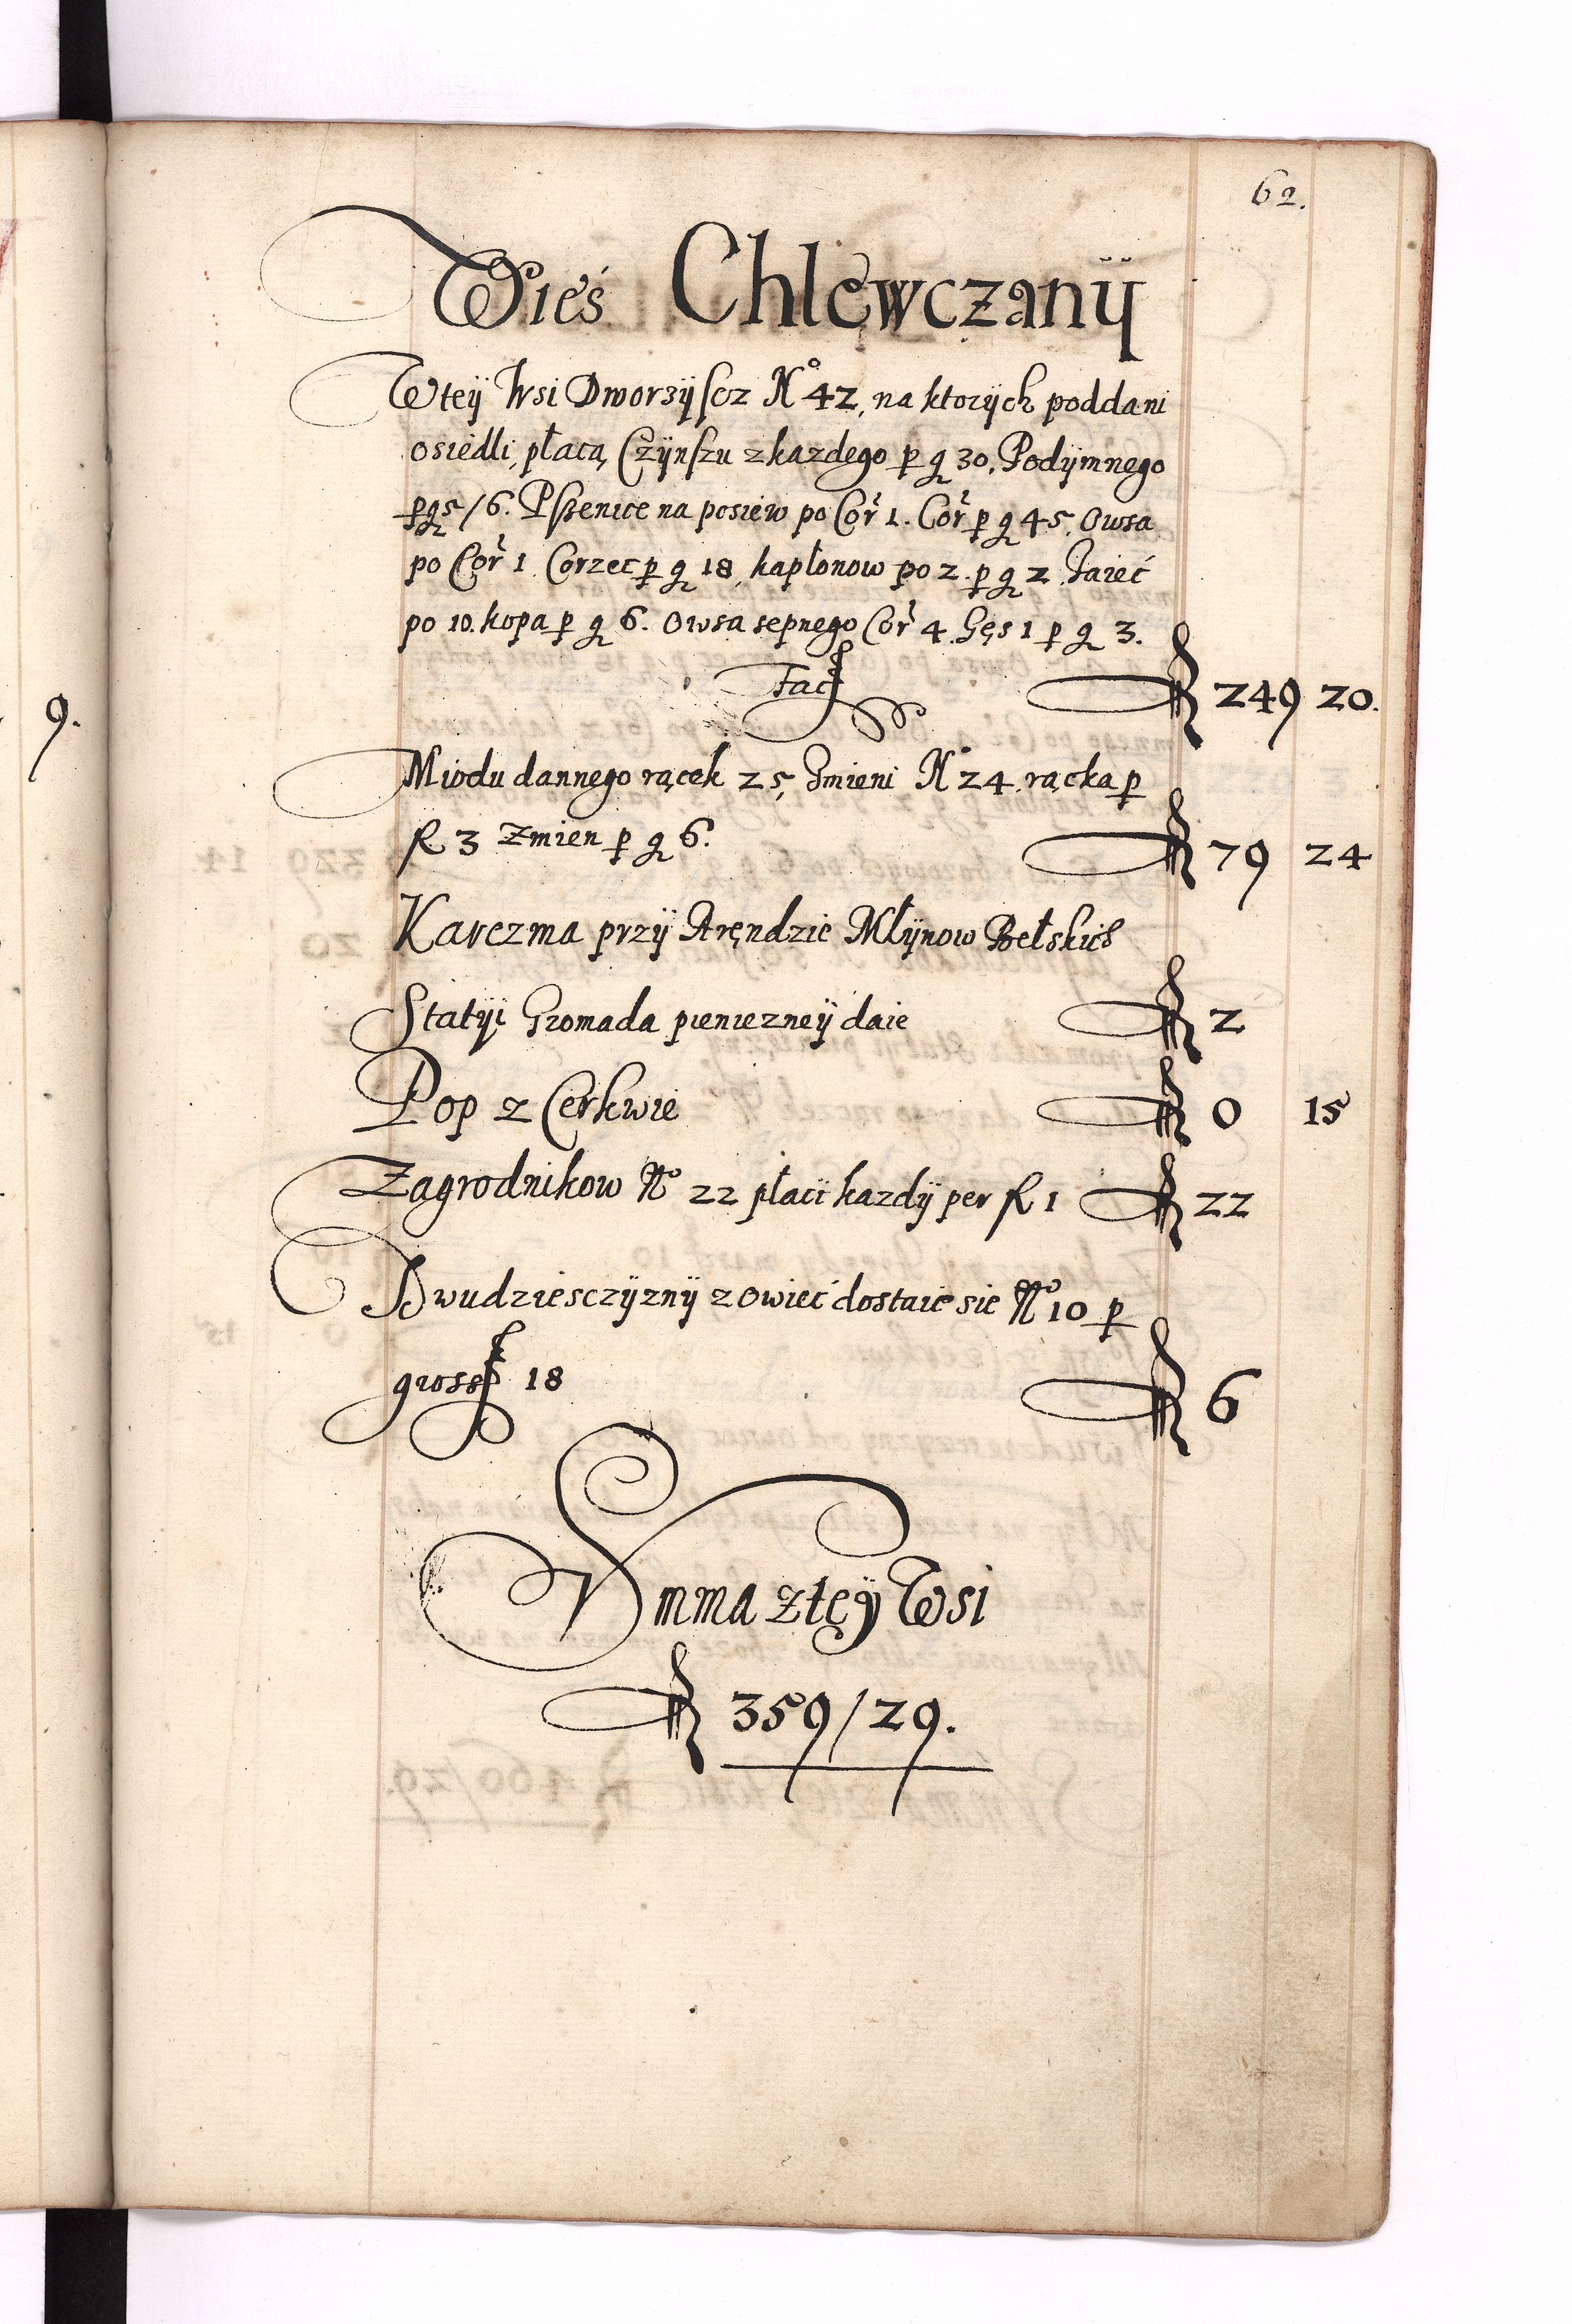 62.
Wieś Chlewczanÿ
Wteÿ Wsi Dworzÿscz Nº 42, na ktorÿch poddani
osiedli, płacą Czÿnszu zkazdego p g 30, Podÿmnego
p g 5/6. Pszenice na posiew po Cor 1. Cor p g 45, Owsa
po Cor 1. Corzec p g 18, kapłonow po 2. p g 2, Jaieć
po 10. kopa p g 6. Owsa sepnego Cor 4. Gęs 1 p g 3.
Facit fl 249 20.
9.
Miodu dannego rącek 25, Zmieni Nº 24, rącka p
fl 3 Zmien p g 6. fl 79 24
Karczma przÿ Aręndzie Młÿnow Bełskich
Statÿi Gromada pienieznеÿ daie fl 2
Pop z Cerkwie fl 0 15
Zagrodnikow Nº 22 płaci kazdÿ per fl 1 fl 22
Dwudziesczÿznÿ z owieć dostaie sie Nº 10 p
gross 18 fl 6
Summa ztęÿ Wsi
fl 359/29.